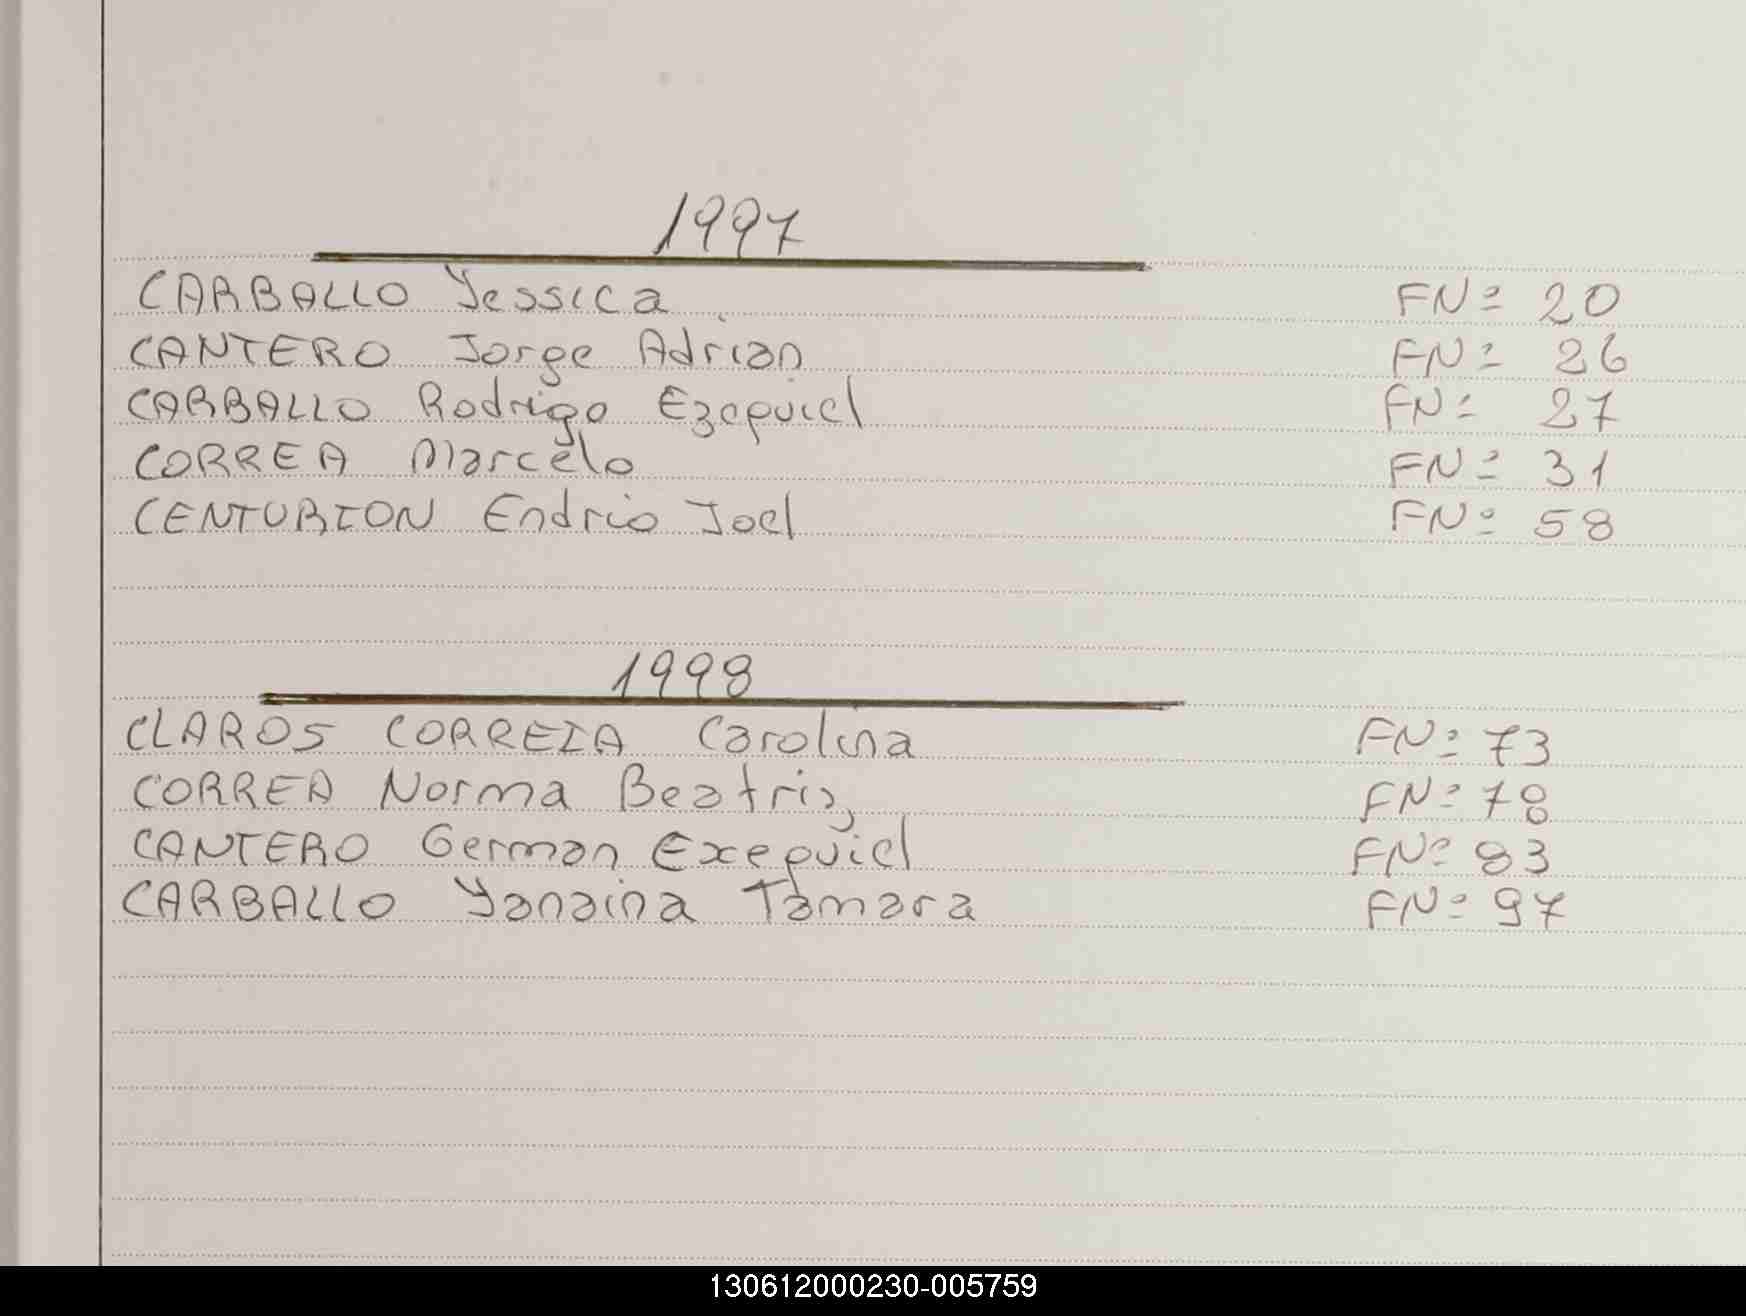 1997
CARBALLO Yessica FNº 20
CANTERO Jorge Adrian FNº 26
CARBALLO Rodrigo Ezequiel FNº 27
CORREA Marcelo FNº 31
CENTURION Endrio Joel FNº 58
1998
CLAROS CORREIA Carolina FNº 73
CORREA Norma Beatriz FNº 78
CANTERO German Exequiel FNº 83
CARBALLO Yanaina Tamara FNº 97
130612000230-005759